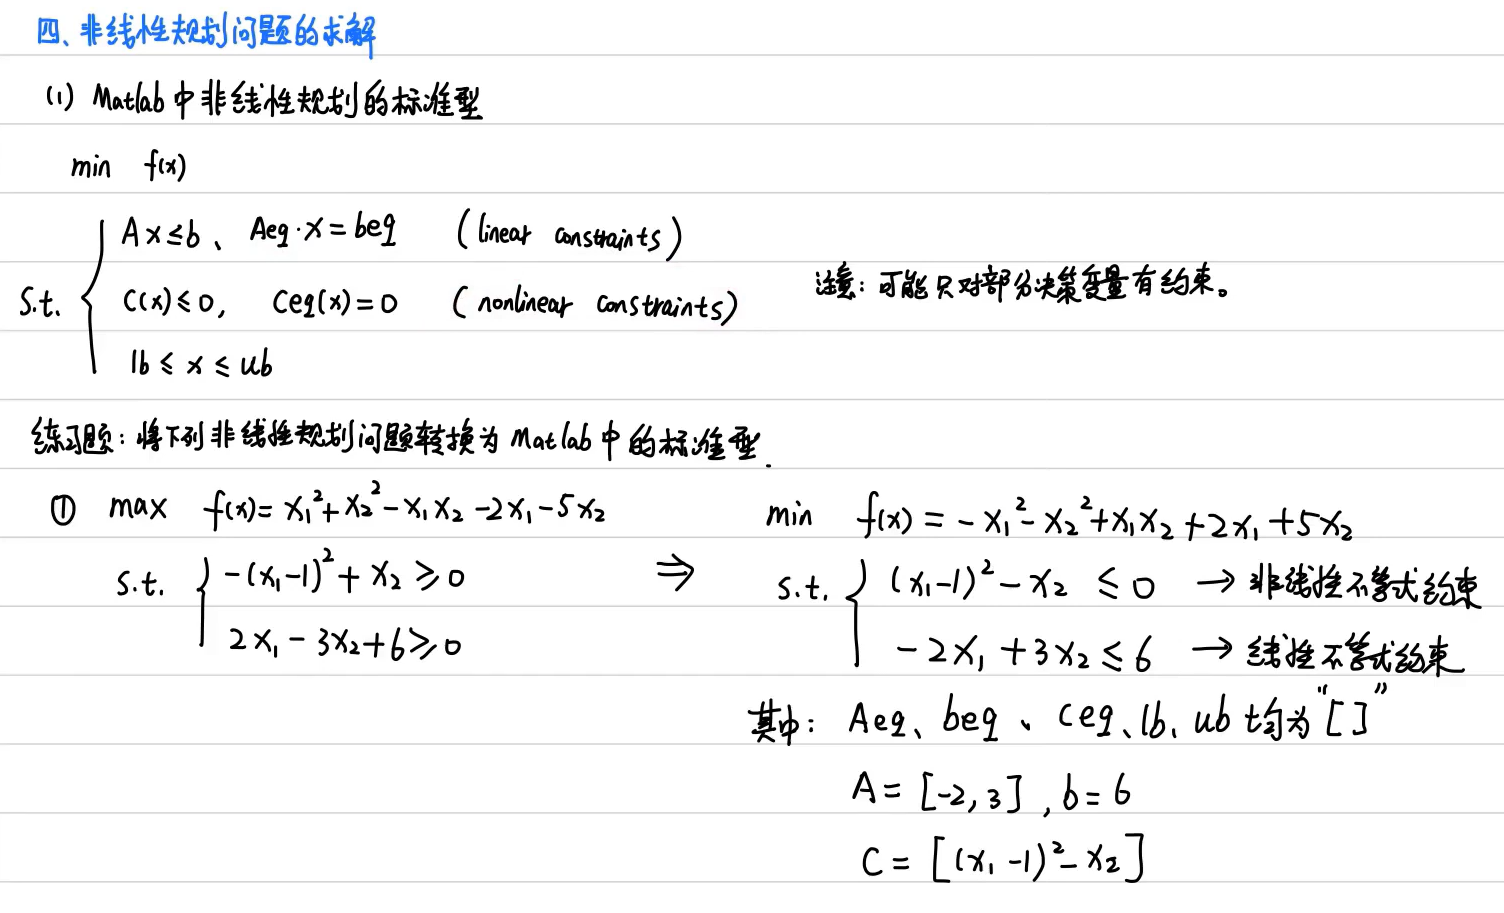 四、非线性规划问题的求解
(1) Matlab中非线性规划的标准型
min f(x)
s.t. { Ax≤b、 Aeq·x=beq (linear constraints)
C(x)≤0, Ceq(x)=0 (nonlinear constraints)
lb≤x≤ub
注意:可能只对部分决策变量有约束。
练习题:将下列非线性规划问题转换为Matlab中的标准型.
① max f(x)=x₁²+x₂²-x₁x₂-2x₁-5x₂
s.t. { -(x₁-1)²+x₂≥0
2x₁-3x₂+6≥0
⇒
min f(x)=-x₁²-x₂²+x₁x₂+2x₁+5x₂
s.t. { (x₁-1)²-x₂≤0 → 非线性不等式约束
-2x₁+3x₂≤6 → 线性不等式约束
其中: Aeq、beq、ceq、lb、ub均为“[]”
A=[-2,3],b=6
C=[(x₁-1)²-x₂]